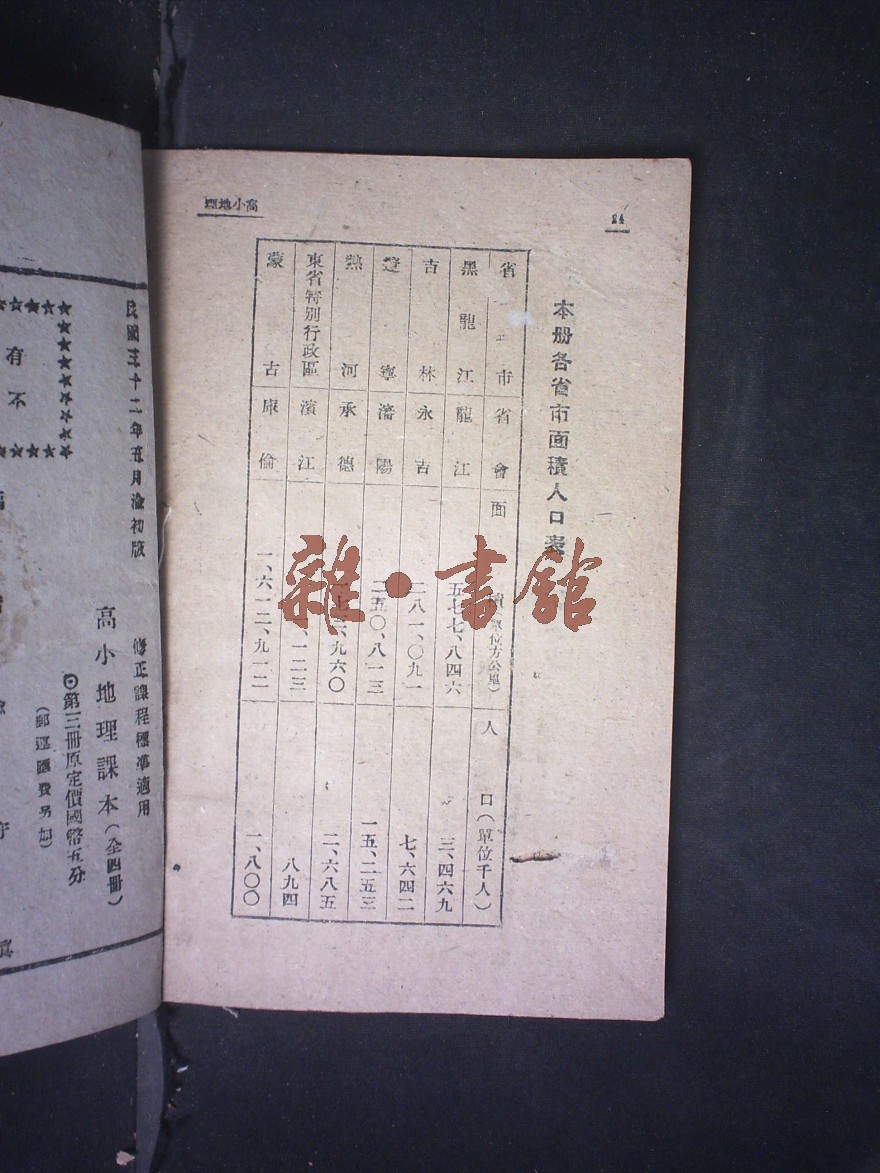 高小地理
本册各省市面積人口表
省市 省會 面積(單位方公里) 人口(單位千人)
黑龍江 龍江 五七七、八四六 三、四六九
吉林 永吉 二八一、〇九一 七、六四二
遼寧 瀋陽 二五〇、八一三 一五、二五三
熱河 承德 九六〇 二、六八五
東省特別行政區 濱江 一二三 八九四
蒙古 庫倫 一、六一二、九一二 一、八〇〇
雜·書館
民國三十二年五月渝初版
修正課程標準適用
高小地理課本(全四冊)
◎第三冊原定價國幣五分
(郵運匯費另加)
有不